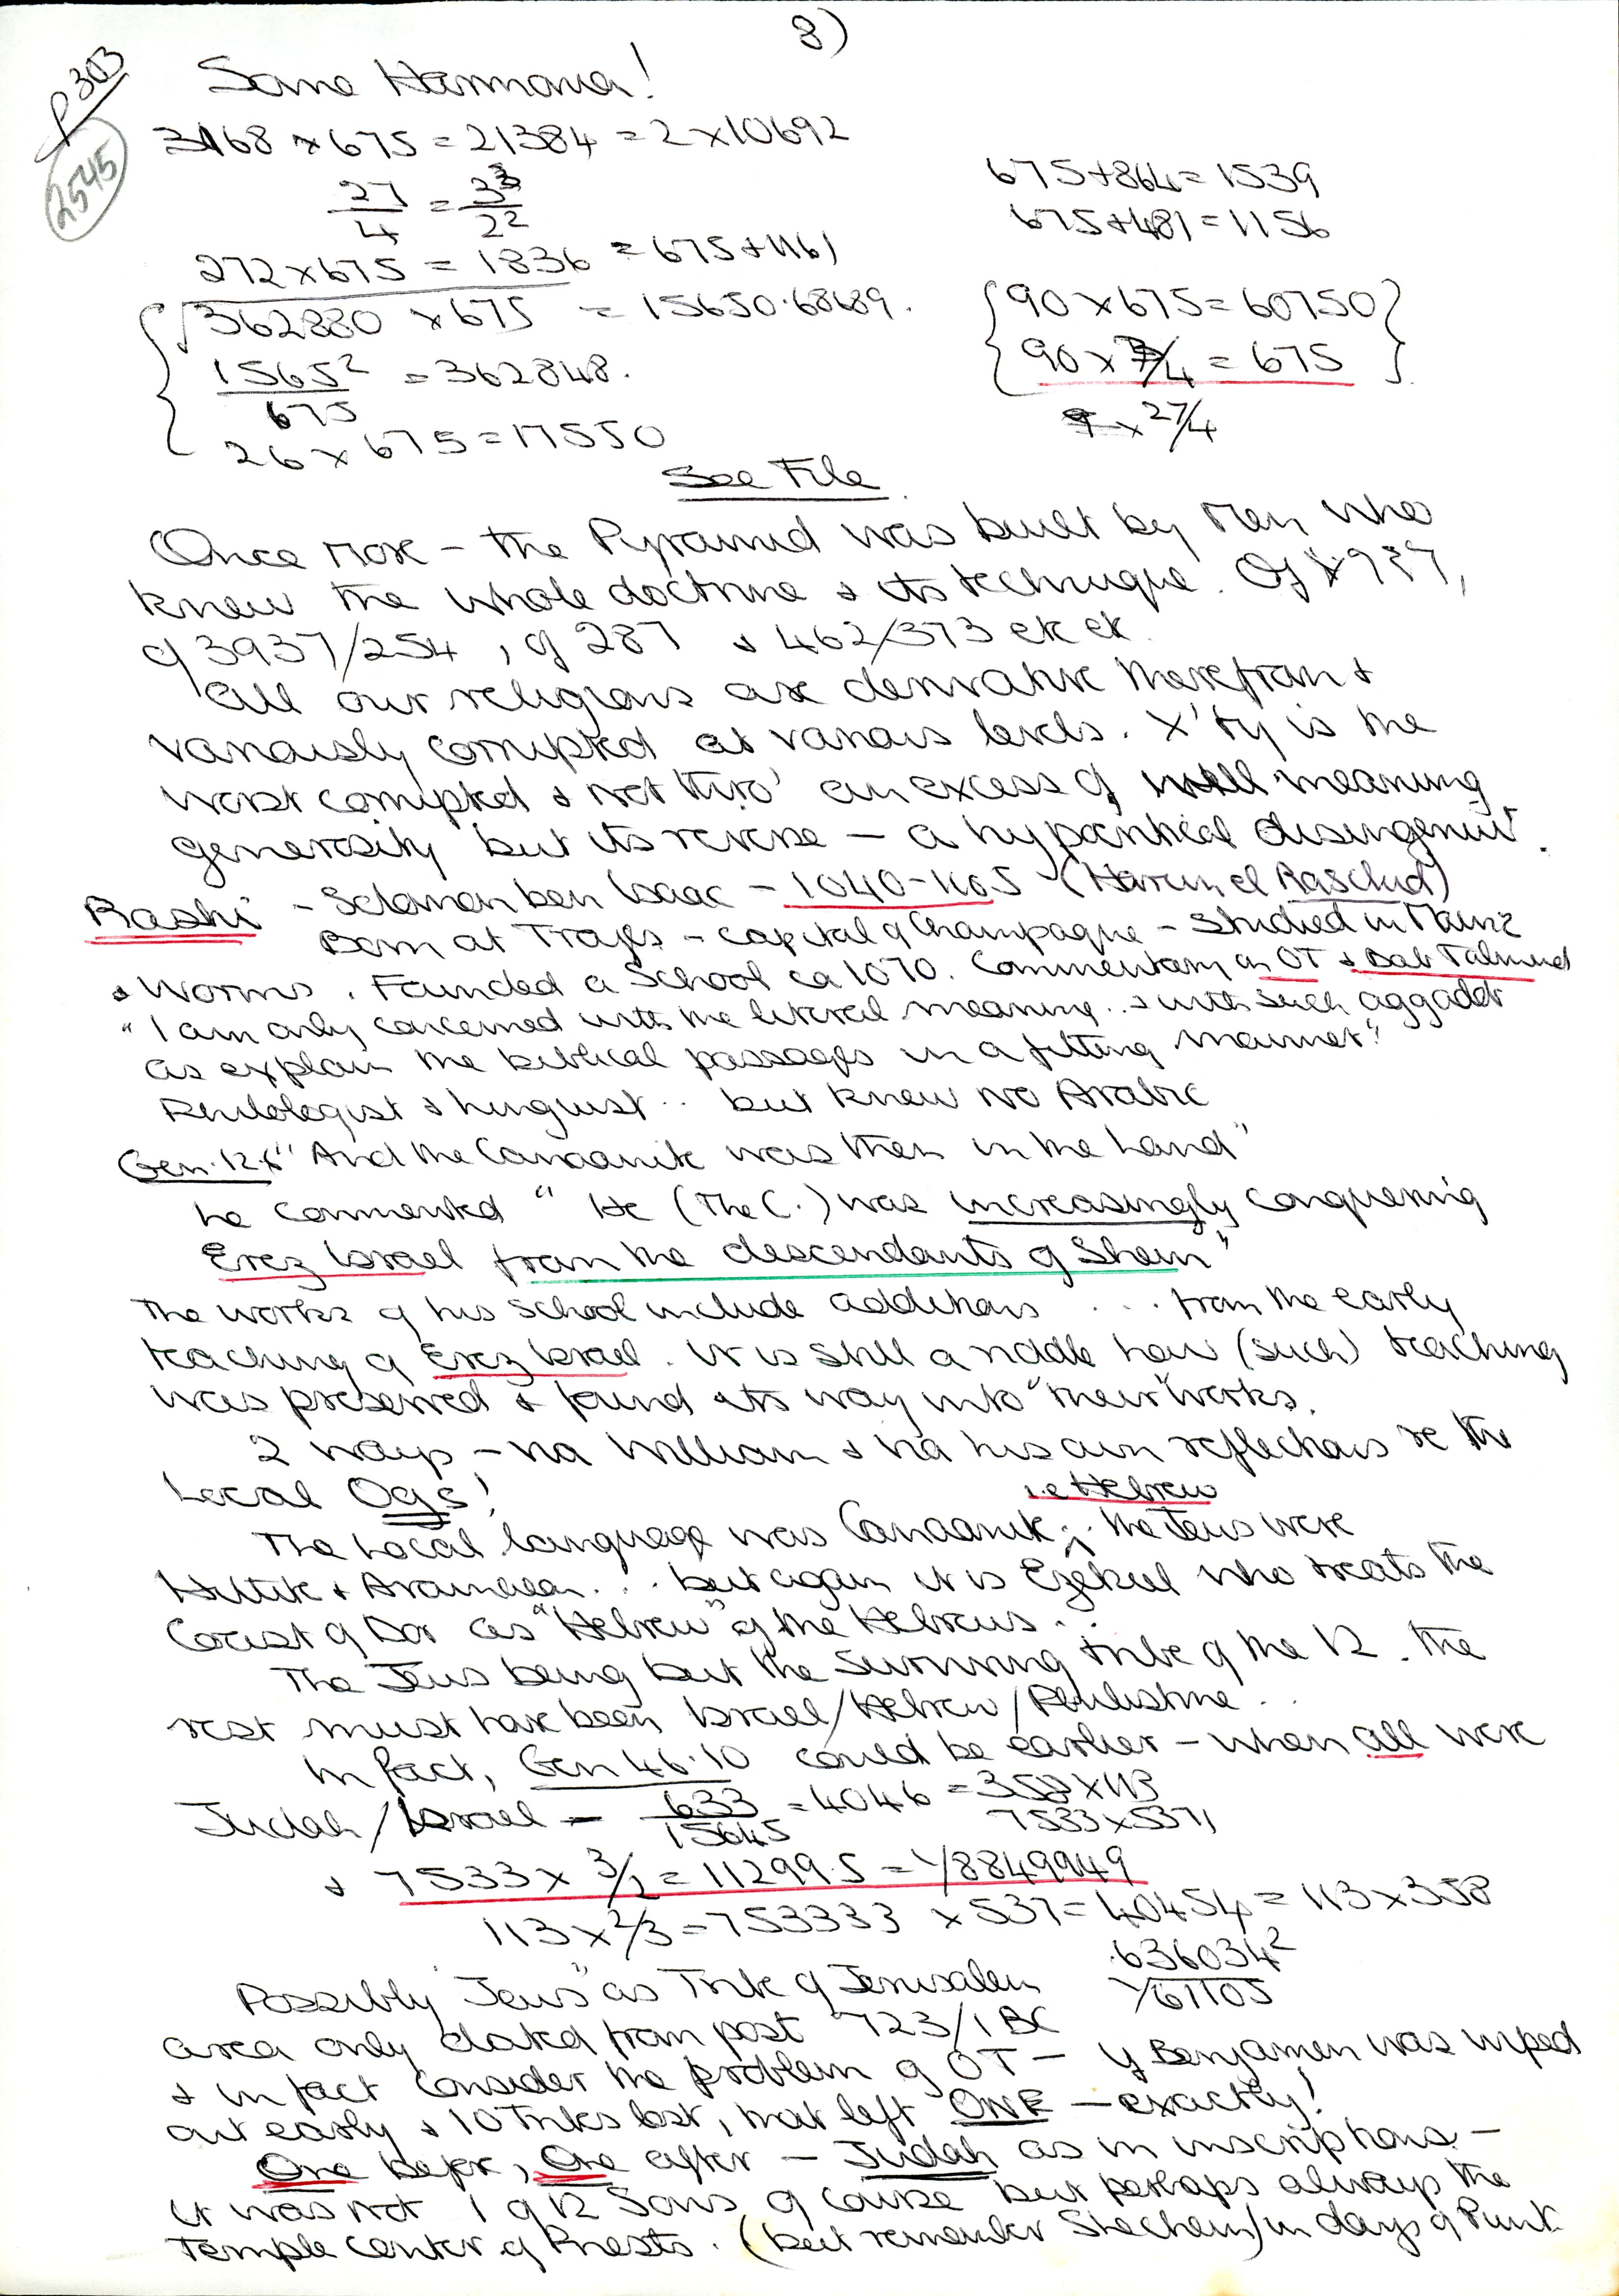 8)
p 303
2545
Same Harmonia!
3168 x 675 = 21384 = 2 x 10692
27/4 = 3³/2²
675 + 864 = 1539
675 + 481 = 1156
272 x 675 = 1836 = 675 + 1161
√362880 x 675 = 15650.68689.
1565²/675 = 362848.
26 x 675 = 17550
{90 x 675 = 60750}
{90 x 3/4 = 675}
x 27/4
See File
Once more – the Pyramid was built by Men who
knew the whole doctrine & its technique. Of
of 3937/254, of 287 & 462/373 etc etc.
All our religions are derivative therefrom &
variously corrupted at various levels. X'ty is the
worst corrupted & not thro' an excess of well meaning
generosity but its reverse – a hypocritical
Rashi – Solomon ben Isaac – 1040-1105 (Harun el Raschid)
Born at Troyes – capital of Champagne – studied in Mainz
& Worms. Founded a School ca 1070. Commentary on OT & Bab Talmud
"I am only concerned with the literal meaning.. & with such aggadot
as explain the biblical passages in a fitting manner."
Philologist & linguist.. but knew no Arabic
Gen. 12.6 "And the Canaanite was then in the land"
he commented "He (The C.) was increasingly conquering
Erez Israel from the descendants of Shem"
The works of his school include additions . . . from the early
teaching of Erez Israel. It is still a riddle how (such) teaching
was preserved & found its way into "their" works.
2 ways – via William & via his own reflections re the
Local Ogs!
i.e Hebrew
The local language was Canaanite ; the Jews were
Hittite & Aramaean... but again it is Ezekiel who treats the
Coast of Dor as "Hebrew" of the Hebrews...
The Jews being but the surviving tribe of the 12. The
rest must have been Israel/Hebrew/Philistine..
In fact, Gen 46.10 could be earlier – when all were
Judah/Israel – 633/15645 = 4046 = 358 x 113
7533 x 5371
& 7533 x 3/2 = 11299.5 = 1/8849949
113 x 2/3 = 753333 x 537 = 40454 = 113 x 358
.636034²
1/61105
Possibly "Jews" as Tribe of Jerusalem
area only dated from post 723/1 BC
& in fact consider the problem of OT – if Benjamen was wiped
out early & 10 Tribes lost, that left ONE – exactly!
One before, One after – Judah as in inscriptions –
it was not 1 of 12 Sons of course but perhaps always the
Temple center of Priests. (but remember Shechem) in days of Punt